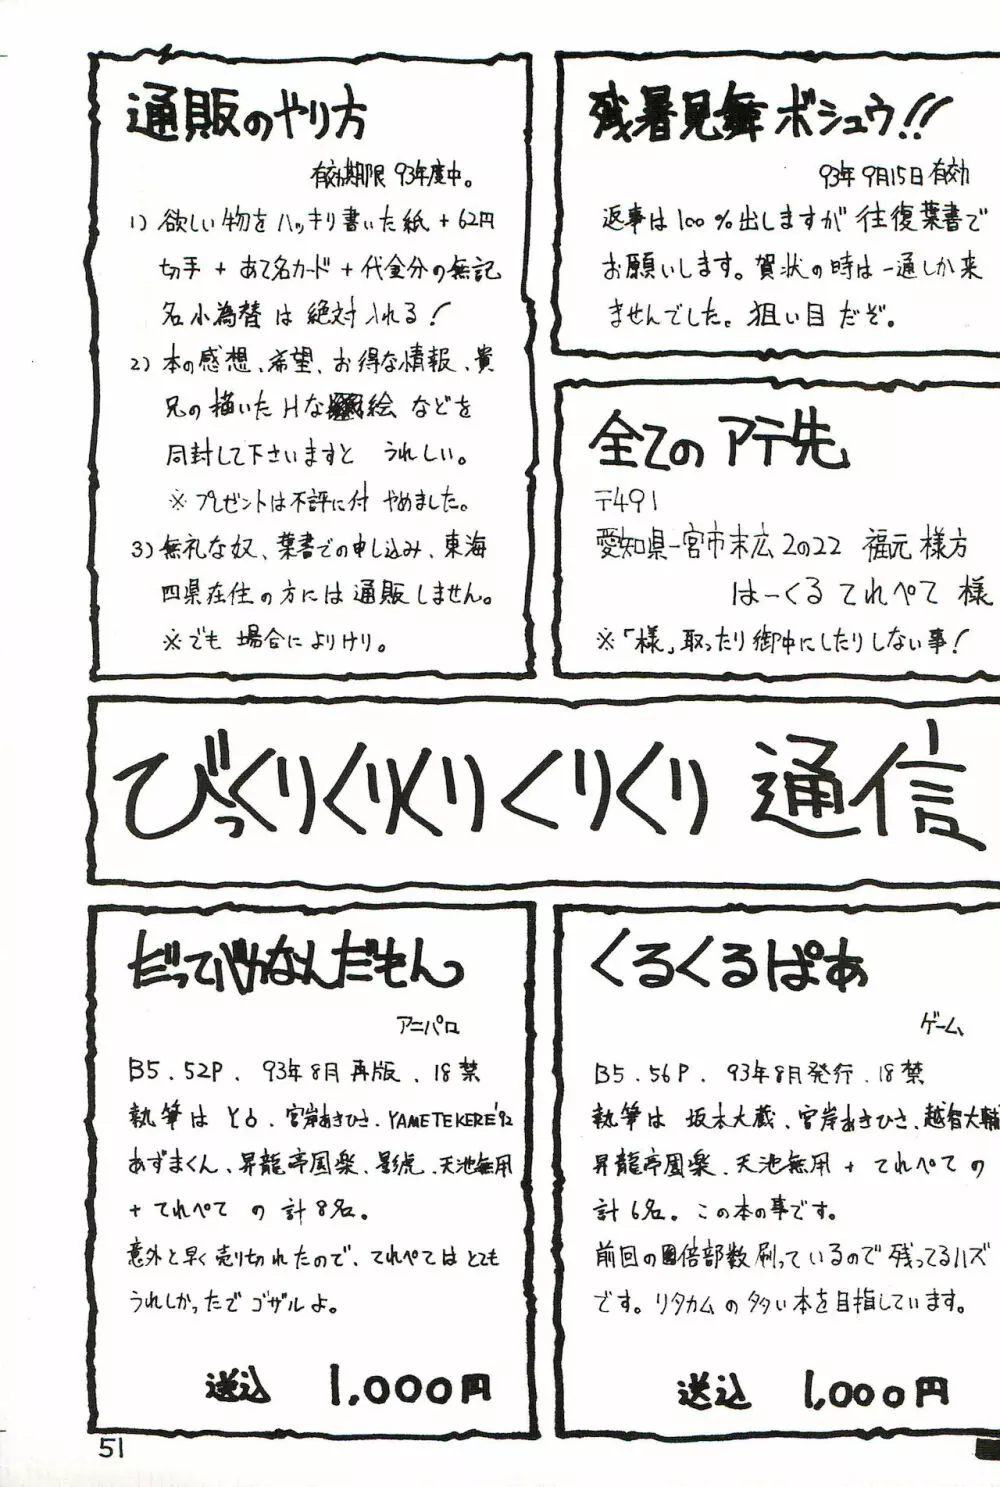 通販のやり方
有効期限 93年度中。
1) 欲しい物をハッキリ書いた紙 + 62円
切手 + あて名カード + 代金分の無記
名小為替は絶対入れる！
2) 本の感想、希望、お得な情報、貴
兄の描いたHな絵などを
同封して下さいますと うれしい。
※プレゼントは不評に付 やめました。
3) 無礼な奴、葉書での申し込み、東海
四県在住の方には通販しません。
※でも 場合によりけり。
残暑見舞ボシュウ!!
93年9月15日有効
返事は100%出しますが往復葉書で
お願いします。賀状の時は一通しか来
ませんでした。狙い目だぞ。
全てのアテ先
〒491
愛知県一宮市末広2の22 福元様方
はーくるてれぺて様
※「様」取ったり御中にしたりしない事！
びっくりくりくりくりくり通信
だってバカなんだもんっ
アニパロ
B5. 52P. 93年8月再版. 18禁
執筆は とろ、宮岸あきひさ、YAMETEKERE'92
あずまくん、昇龍亭圓楽、影虎、天池無用
+ てれぺて の 計8名。
意外と早く売り切れたので、てれぺてはとても
うれしかったでゴザルよ。
送込 1,000円
くるくるぱあ
ゲーム
B5. 56P. 93年8月発行. 18禁
執筆は 坂本大蔵、宮岸あきひさ、越智大輔
昇龍亭圓楽、天池無用 + てれぺての
計6名。この本の事です。
前回の倍部数刷っているので残ってるハズ
です。リタカムの多い本を目指しています。
送込 1,000円
51